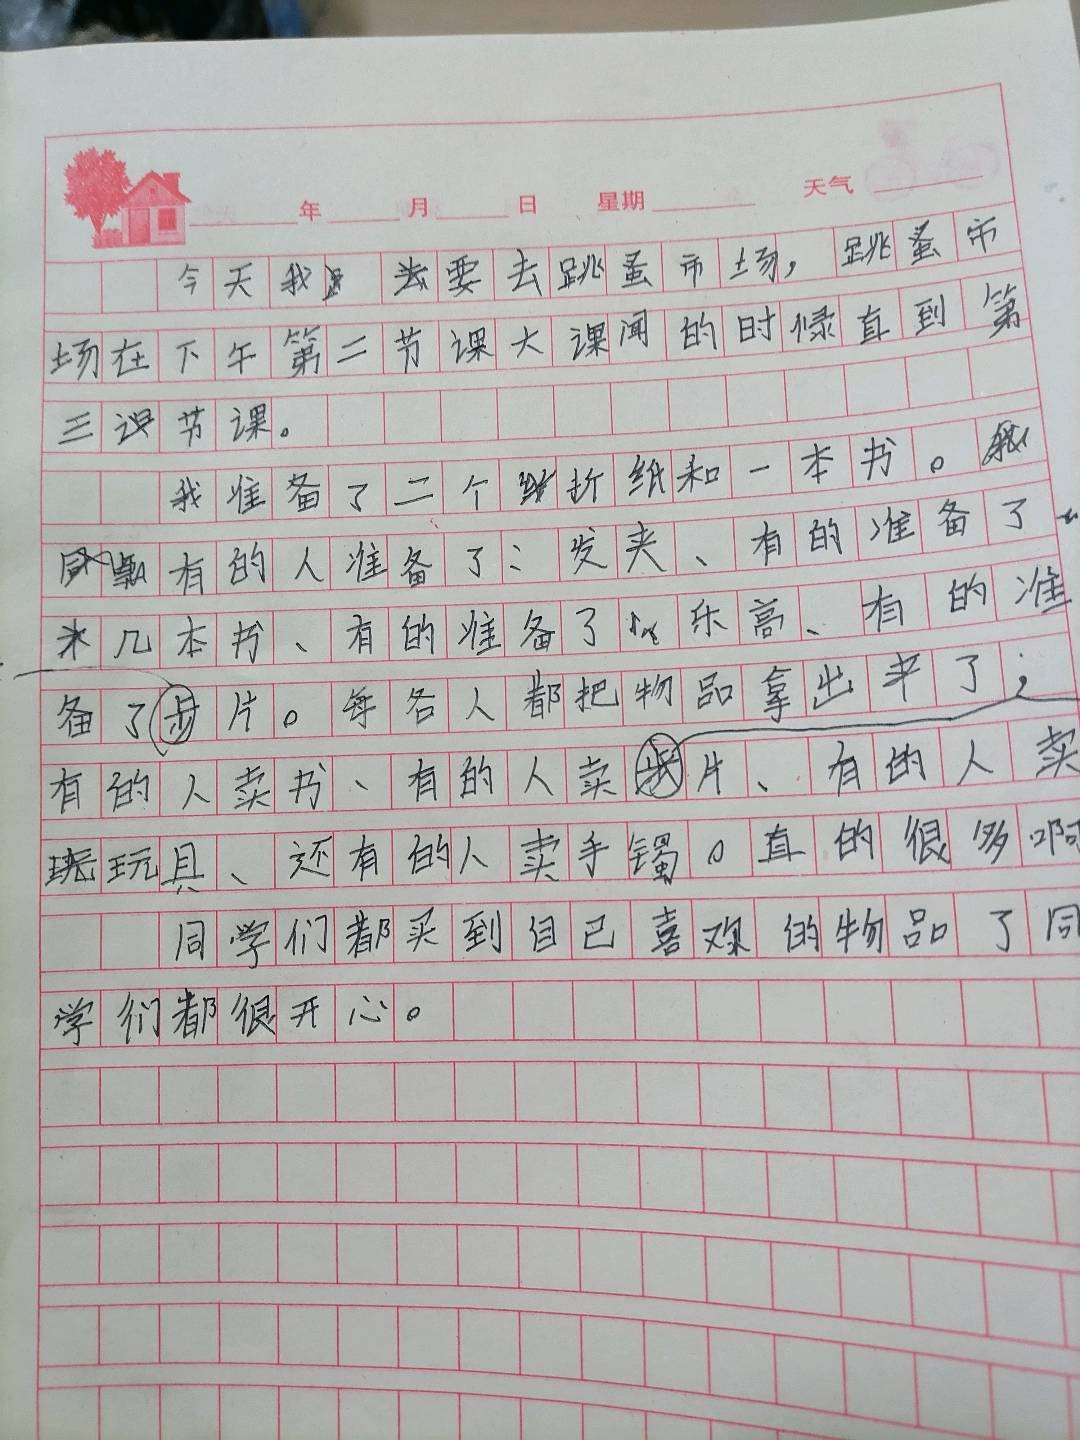 年 月 日 星期 天气
今天我要去跳蚤市场,跳蚤市
场在下午第二节课大课闻的时候直到第
三节课。
我准备了二个折纸和一本书。
有的人准备了:发夹、有的准备了
几本书、有的准备了乐高、有的准
备了卡片。每各人都把物品拿出来了;
有的人卖书、有的人卖卡片、有的人卖
玩具、还有的人卖手镯。直的很多啊
同学们都买到自己喜欢的物品了同
学们都很开心。